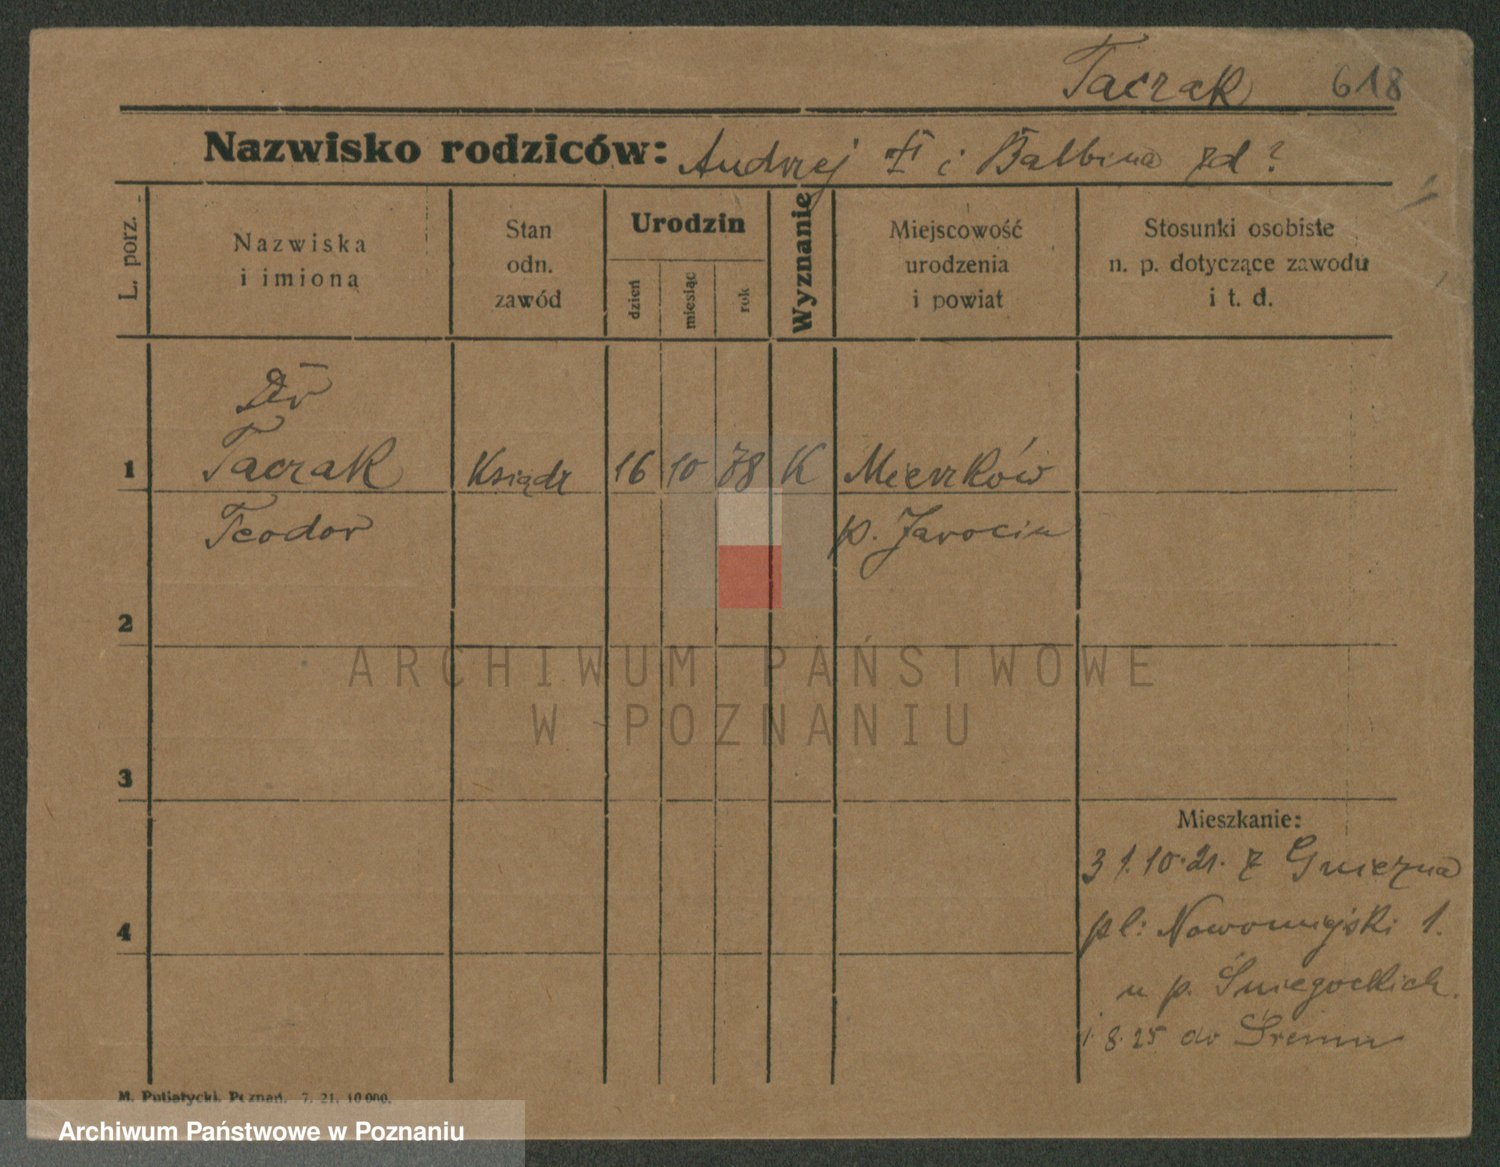 Taczak 618
Nazwisko rodziców: Andrzej i Balbina zd?
L. porz.
Nazwiska
i imiona
Stan
odn.
zawód
Urodzin
dzień
miesiąc
rok
Wyznanie
Miejscowość
urodzenia
i powiat
Stosunki osobiste
n. p. dotyczące zawodu
i t. d.
Dr
1 Taczak Ksiądz 16 10 78 K Mieszków
Teodor p. Jarocin
2
3
4
Mieszkanie:
31.10.21. z Gniezna
pl: Nowomiejski 1.
u p. Śniegockich.
1.8.25 do Śremu
M. Putiatycki, Poznań. 7. 21. 10 000.
ARCHIWUM PAŃSTWOWE
W POZNANIU
Archiwum Państwowe w Poznaniu